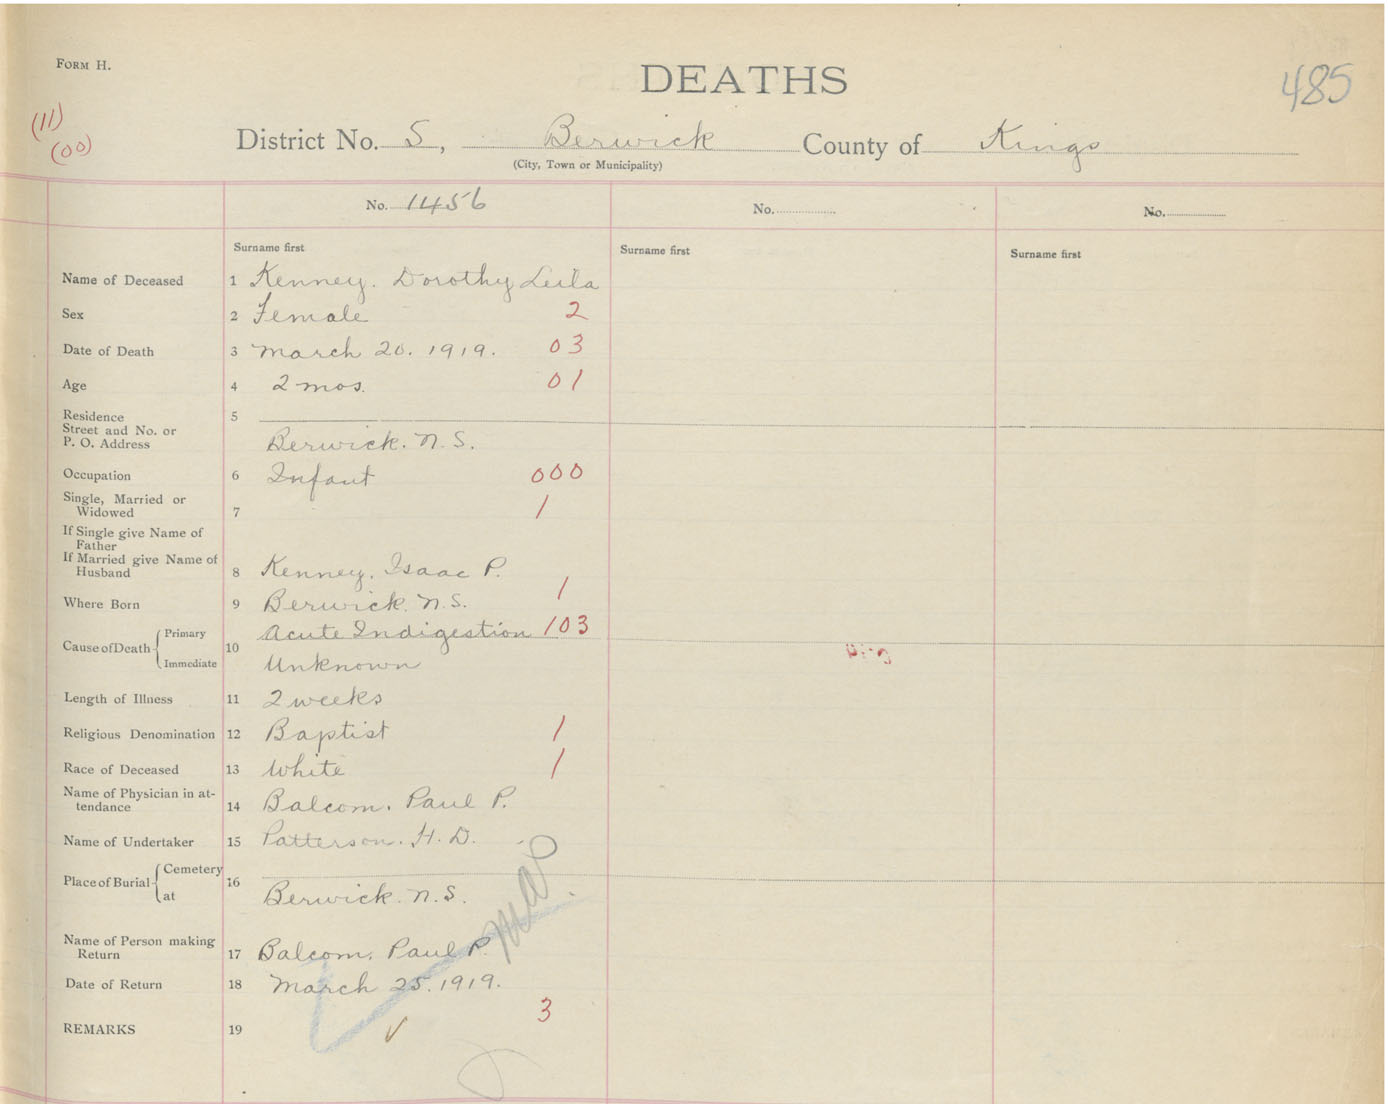 FORM H.
DEATHS
485
(11)
(00)
District No. 5, Berwick County of Kings
(City, Town or Municipality)
No. 1456 No. No.
Surname first Surname first Surname first
Name of Deceased 1 Kenney, Dorothy Leila
Sex 2 Female 2
Date of Death 3 March 20. 1919. 03
Age 4 2 mos. 01
Residence 5
Street and No. or
P. O. Address Berwick. N.S.
Occupation 6 Infant 000
Single, Married or
Widowed 7 1
If Single give Name of
Father
If Married give Name of
Husband 8 Kenney, Isaac P.
Where Born 9 Berwick. N.S. 1
Cause of Death Primary 10 Acute Indigestion 103
Immediate Unknown
Length of Illness 11 2 weeks
Religious Denomination 12 Baptist 1
Race of Deceased 13 White 1
Name of Physician in at-
tendance 14 Balcom, Paul P.
Name of Undertaker 15 Patterson. H. D.
Place of Burial Cemetery 16
at Berwick. N.S.
Name of Person making
Return 17 Balcom, Paul P.
Date of Return 18 March 25. 1919.
3
REMARKS 19